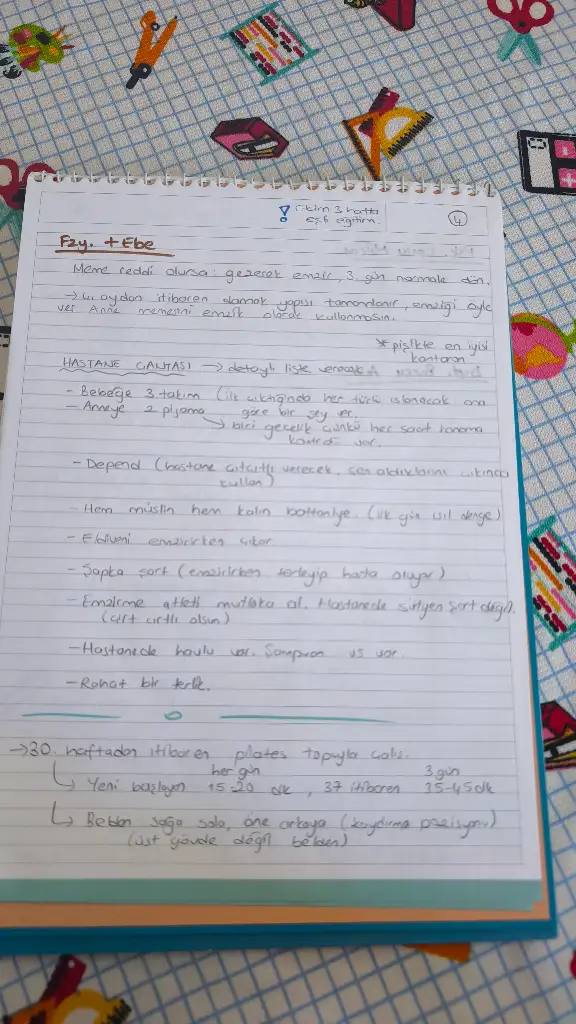 ! Ekim 3. hafta
eşli eğitim.
4
Fzy. + Ebe
Meme reddi olursa: gezerek emzir, 3. gün normale dön.
→ 4. aydan itibaren damak yapısı tamamlanır, emziği öyle
ver Anne memesini emzik olarak kullanmasın.
* pişikte en iyisi
kantaron
HASTANE ÇANTASI → detaylı liste verecek
- Bebeğe 3 takım (ilk çıktığında her türlü ıslanacak ona
göre bir şey ver.
- Anneye 2 pijama
→ biri gecelik çünkü her saat kanama
kontrolü var.
- Depend (hastane çıtçıtlı verecek, sen aldıklarını çıkınca
kullan)
- Hem müslin hem kalın battaniye. (ilk gün ısıl denge)
- Eldiveni emzirirken çıkar
- Şapka şart (emzirirken terleyip hasta oluyor)
- Emzirme atleti mutlaka al. Hastanede sütyen şart değil.
(çıtçıtlı olsun)
- Hastanede havlu var. Şampuan vs var.
- Rahat bir terlik.
→ 30. haftadan itibaren pilates topuyla çalış.
her gün 3 gün
↳ Yeni başlayan 15-20 dk, 37 itibaren 35-45 dk
↳ Belden sağa sola, öne arkaya (kaydırma pozisyonu)
(üst gövde değil belden)